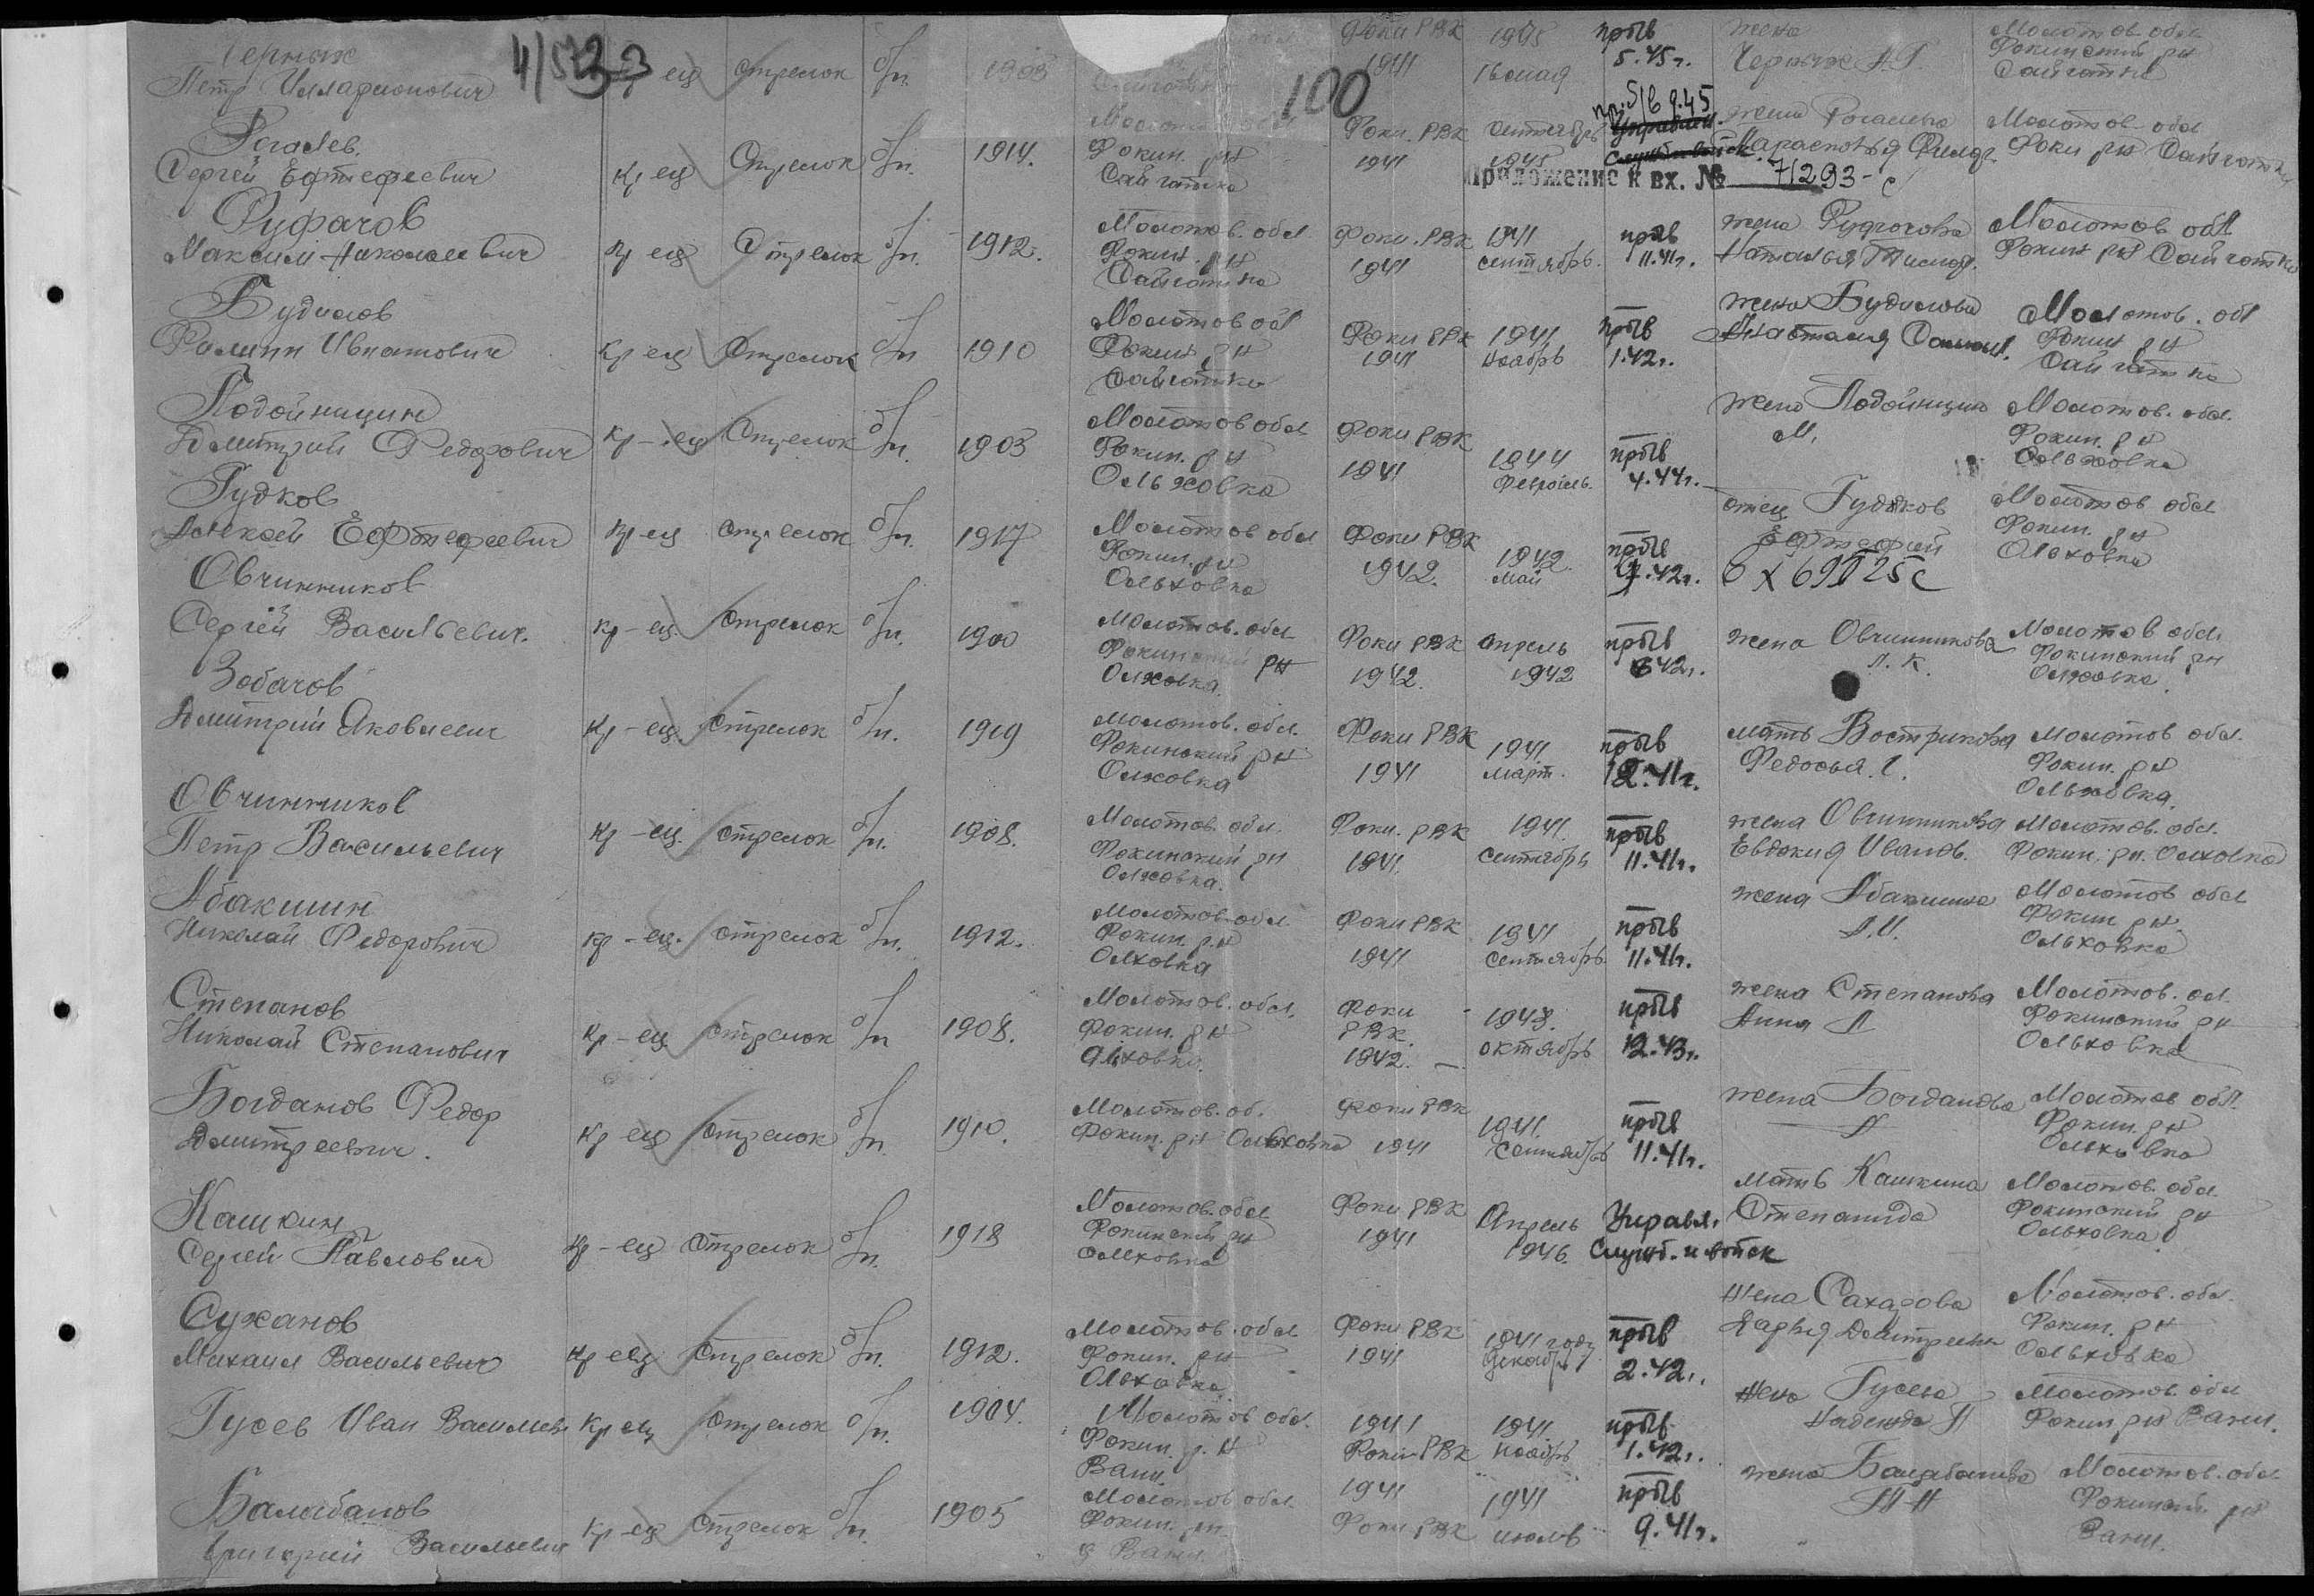 Черных
Петр Илларионович
4/533
кр ец стрелок б/п. 1903
Сайгатка
100
Фоки РВК
1941
1945
16 мая
прыв
5.45 г.
жена
Черных А. Г.
Молотов обл
Фокинский рн
Сайгатка
Рогалев.
Сергей Ефтефеевич
Кр ец Стрелок б/п. 1914.
Молотов обл
Фокин. рн
Сайгатка
Фоки. РВК
1941
сентябрь
1945
пр. 5/6 9.45
жена Рогалева
Параскевья
Молотов обл
Фоки рн Сайгатка
Приложение к вх. № 71293-с
Руфачов
Максим Николаевич
Кр ец Стрелок б/п. 1912.
Молотов. обл
Фокин. рн
Сайгатка
Фоки. РВК
1941
1941
сентябрь.
прыв
11.41 г.
жена
Наталья
Молотов обл
Фокин рн Сайгатка
Будилов
Филипп Игнатович
Кр ец Стрелок б/п 1910
Молотов обл
Фокин рн
Сайгатка
Фоки РВК
1941
1941
ноябрь
прыв
1.42 г.
жена Будилова
Анастасия
Молотов. обл
Фокин рн
Сайгатка
Лодойницин
Дмитрий Федорович
Кр-ец Стрелок б/п. 1903
Молотов обл
Фокин. рн
Ольховка
Фоки РВК
1941
1944
февраль.
прыв
4.44 г.
жена Лодойницин
М.
Молотов. обл.
Фокин. рн
Ольховка
Гудков
Алексей Ефтефеевич
Кр-ец стрелок б/п. 1917
Молотов обл
Фокин. рн
Ольховка
Фоки РВК
1942.
1942.
май
прыв
7.42 г.
отец Гудков
Ефтефей
Молотов обл
Фокин. рн
Ольховка
Овчинников
Сергей Васильевич.
кр-ец. стрелок б/п. 1900
Молотов. обл
Фокинский рн
Олховка.
Фоки РВК
1942.
апрель
1942
прыв
6 42 г.
жена Овчинникова
Л. К.
Молотов обл.
Фокинский рн
Олховка.
Зобачов
Дмитрий Яковлевич
Кр-ец. стрелок б/п. 1919
Молотов. обл.
Фокинский рн
Олховка
Фоки РВК
1941
1941.
март.
прыв
12.41 г.
мать Вострикова
Федосья.
Молотов обл.
Фокин. рн
Ольховка.
Овчинников
Петр Васильевич
Кр-ец. стрелок б/п. 1908.
Молотов. обл.
Фокинский рн
Олховка.
Фоки. РВК
1941.
1941.
сентябрь
прыв
11.41 г.
жена Овчинникова
Евдокия Иванов.
Молотов. обл.
Фокин. рн. Олховка
Абакшин
Николай Федорович
кр-ец. стрелок б/п. 1912.
Молотов обл
Фокин. рн
Олховка
Фоки РВК
1941
1941
сентябрь.
прыв
11.41 г.
жена Абакшина
А. И.
Молотов обл
Фокин рн.
Ольховка
Степанов
Николай Степанович
Кр-ец стрелок б/п 1908.
Молотов. обл.
Фокин. рн
Олховка.
Фоки
РВК.
1942.
1943.
октябрь
прыв
12.43 г.
жена Степанова
Анна А
Молотов. ол.
Фокинский рн
Ольховка
Богданов Федор
Дмитреевич.
Кр ец стрелок б/п. 1910.
Молотов. об.
Фокин. рн Ольховка
Фоки РВК
1941
1941.
Сентябрь
прыв
11.41 г.
жена Богданова
А
Молотов обл.
Фокин. рн
Ольховка
Кашкин
Сергей Павлович
Кр-ец стрелок б/п. 1918
Молотов. обл
Фокинский рн
Олховка
Фоки РВК
1941
Апрель
1946.
Управл.
Служб. и войск
мать Кашкина
Степанида
Молотов. обл.
Фокинский рн
Ольховка
Суханов
Михаил Васильевич
Кр ец Стрелок б/п. 1912.
Молотов. обл
Фокин. рн
Ольховка
Фоки РВК
1941
1941 году
декабрь
прыв
2.42 г.
жена
Дарья Дмитревна
Молотов. обл.
Фокин. рн
Ольховка
Гусев Иван Васильев
Кр ец стрелок б/п. 1904.
Молотов обл.
Фокин р. н
Ваньк.
1941
Фоки РВК
1941.
ноябрь
прыв
1.42 г.
жена Гусева
Надежда П
Молотов обл
Фокин рн Ваньк.
Балабанов
Григорий Васильевич
Кр-ец Стрелок б/п. 1905
Молотов обл.
Фокин. рн
1941
Фоки РВК
1941
июль
прыв
9.41 г.
жена Балабанова
Молотов. обл
Фокинский рн